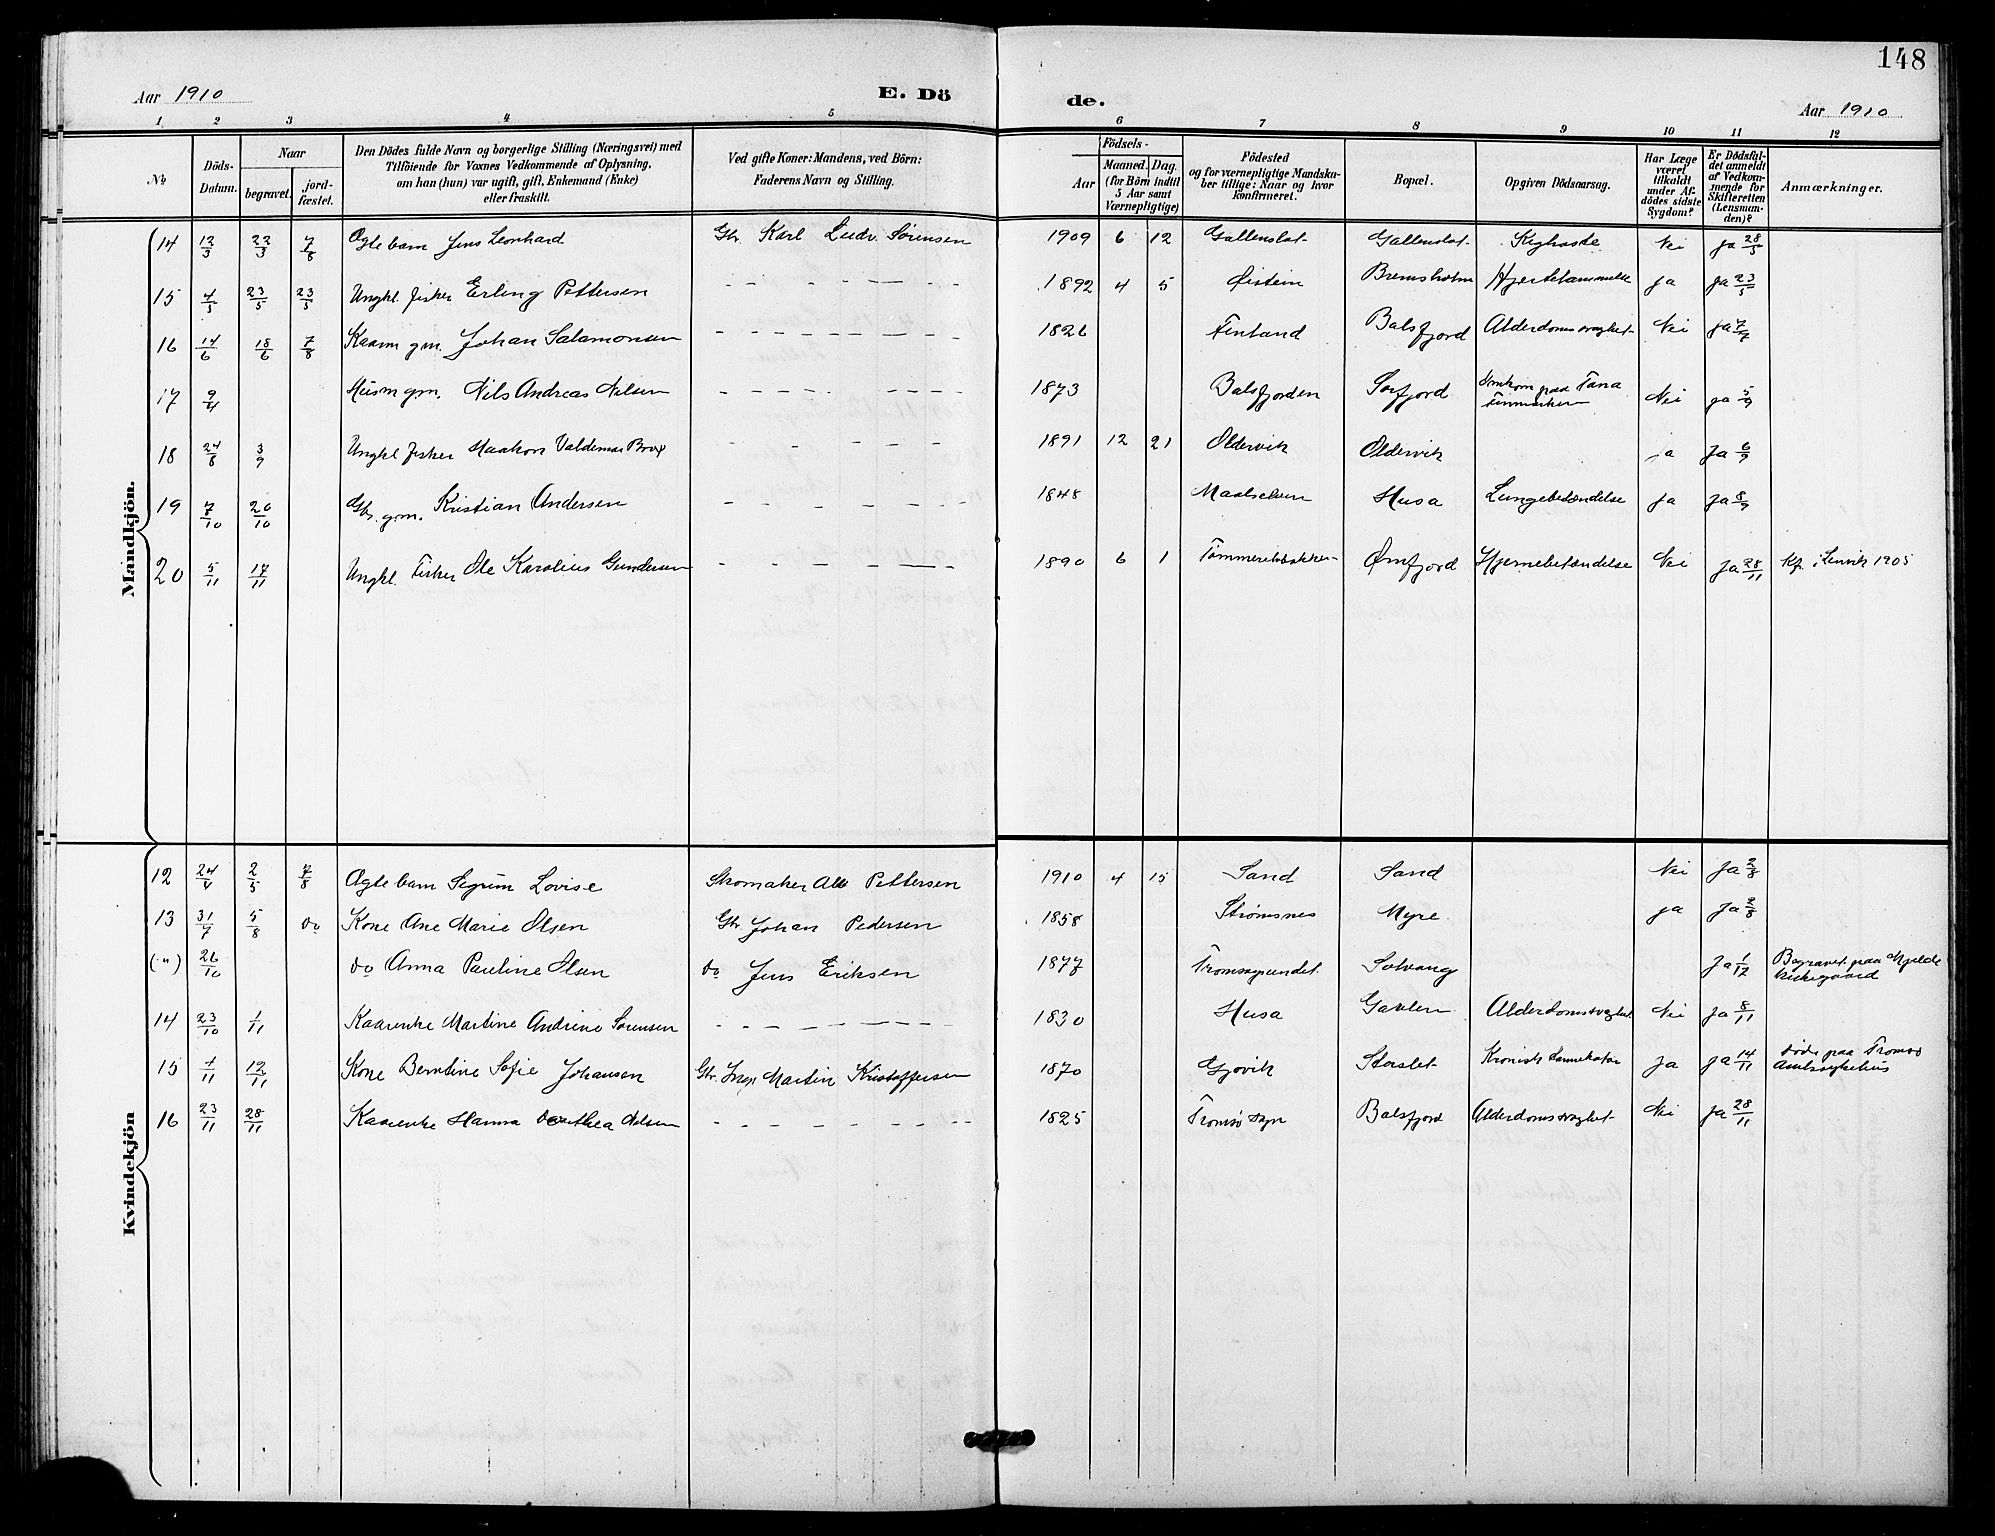 148
Aar 1910 E. Dö de. Aar 1910
1 2 3 4 5 6 7 8 9 10 11 12
№ Döds-Datum. Naar begravet. jordfæstet. Den Dödes fulde Navn og borgerlige Stilling (Næringsvei) med Tilföiende for Voxnes Vedkommende af Oplysning, om han (hun) var ugift, gift, Enkemand (Enke) eller fraskilt. Ved gifte Koner: Mandens, ved Börn: Faderens Navn og Stilling. Aar Födsels- Maaned. Dag. (for Börn indtil 5 Aar samt Værnepligtige) Födested og for værnepligtige Mandskaber tillige: Naar og hvor konfirmeret. Bopæl. Opgiven Dödsaarsag. Har Læge været tilkaldt under Afdödes sidste Sygdom? Er Dödsfaldet anmeldt af Vedkommende for Skifteretten (Lensmanden)? Anmærkninger.
Mandkjön.
14 13/3 22/3 7/8 Ægte barn Jens Leonhard Gbr. Karl Ludv. Sørensen 1909 6 12 Gallenslot Gallenslot Kighoste Nei ja 28/5
15 4/5 23/5 23/5 Ungkl. fisker Erling Pettersen - - - - - - 1892 4 5 Øistein Bremsholm Hjertelammelse ja ja 23/5
16 14/6 18/6 7/8 Kaarm gm. Johan Salamonsen - - - - - - 1826 Finland Balsfjord Alderdomssvaghet Nei ja 7/7
17 9/4 Husm gm. Nils Andreas Nilsen - - - - - - 1873 Balsfjorden Sørfjord Omkom paa Tana Finmarken Nei ja 5/9
18 24/8 3/9 Ungkl fisker Haakon Valdemar Brox - - - - - 1891 12 21 Oldervik Oldervik ja Ja 6/9
19 7/10 20/10 Gbr. gm. Kristian Andersen - - - - - - 1848 Maalselven Husa Lungebetændelse ja ja 8/9
20 5/11 17/11 Ungkl. Fisker Ole Karolius Gundersen - - - - - - 1890 6 1 Tømmerelvbakken Ørnfjord Hjernebetændelse Nei Ja 28/11 Kf. i Lenvik 1905
Kvindekjön
12 24/4 2/5 7/8 Ægte barn Sigrun Lovise Skomaker Alb Pettersen 1910 4 15 Sand Sand Nei Ja 2/8
13 31/7 5/8 do Kone Ane Marie Olsen Gbr. Johan Pedersen 1858 Strømsnes Myre ja Ja 2/8
(") 26/10 do Anna Pauline Olsen do Jens Eriksen 1877 Tromsøysundet Solvang Ja 1/12 Begravet paa Mjelde kirkegaard
14 23/10 1/11 Kaarenke Martine Andrine Sørensen - - - - - - 1830 Husa Gavlen Alderdomssvaghet Nei Ja 8/11
15 1/11 12/11 Kone Berntine Sofie Johansen Gbr. Ingv Martin Kristoffersen 1870 Gjøvik Storslet Kronisk ja ja 14/11 døde paa Tromsø Amtssykehus
16 23/11 28/11 Kaarenke Hanna Dorthea Nilsen - - - - - - 1825 Tromsø sogn Balsfjord Alderdomssvaghet Nei Ja 28/11